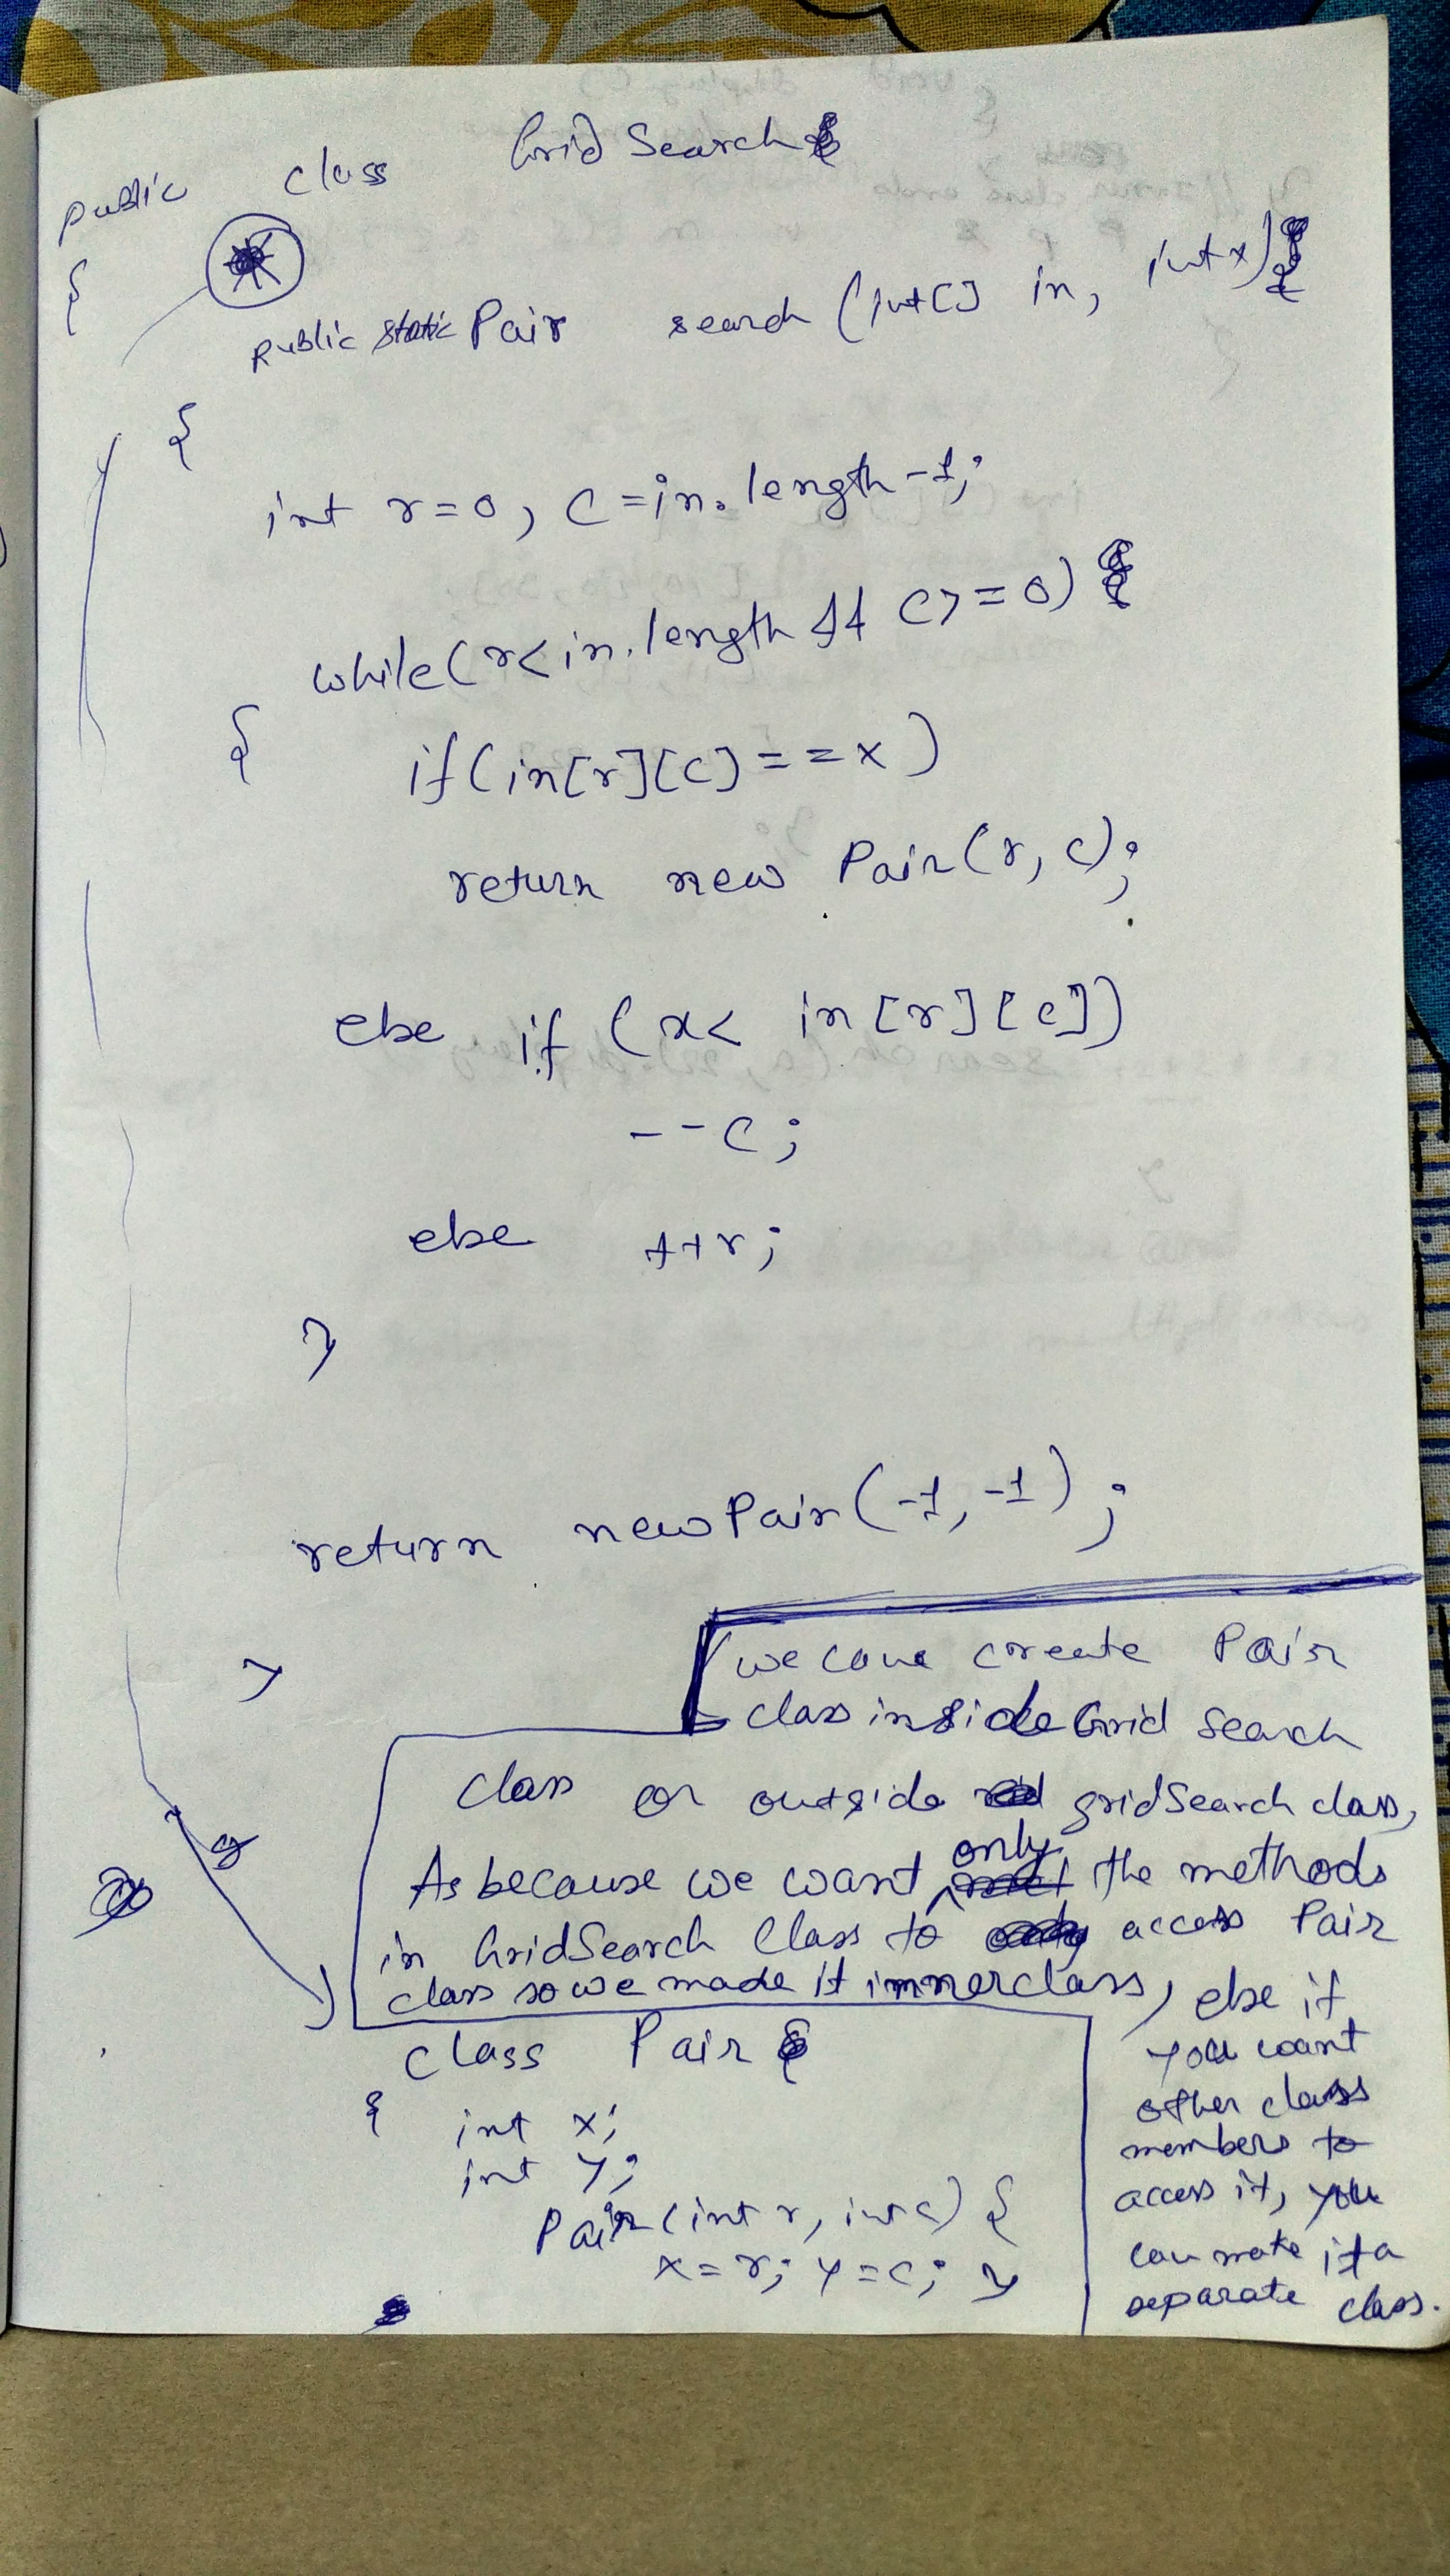 public class GridSearch
{
public static Pair search (int[] in, int x)
{
int r=0, c=in.length-1;
while(r<in.length && c>=0)
{
if(in[r][c]==x)
return new Pair(r, c);
else if (x< in[r][c])
--c;
else ++r;
}
return new Pair(-1,-1);
}
we can create Pair
class inside Grid Search
class or outside gridSearch class,
As because we want only the methods
in GridSearch Class to access Pair
class so we made it innerclass, else if
you want
other class
members to
access it, you
can make it a
separate class.
class Pair
{
int x;
int y;
Pair(int r, int c) {
x=r; y=c; }